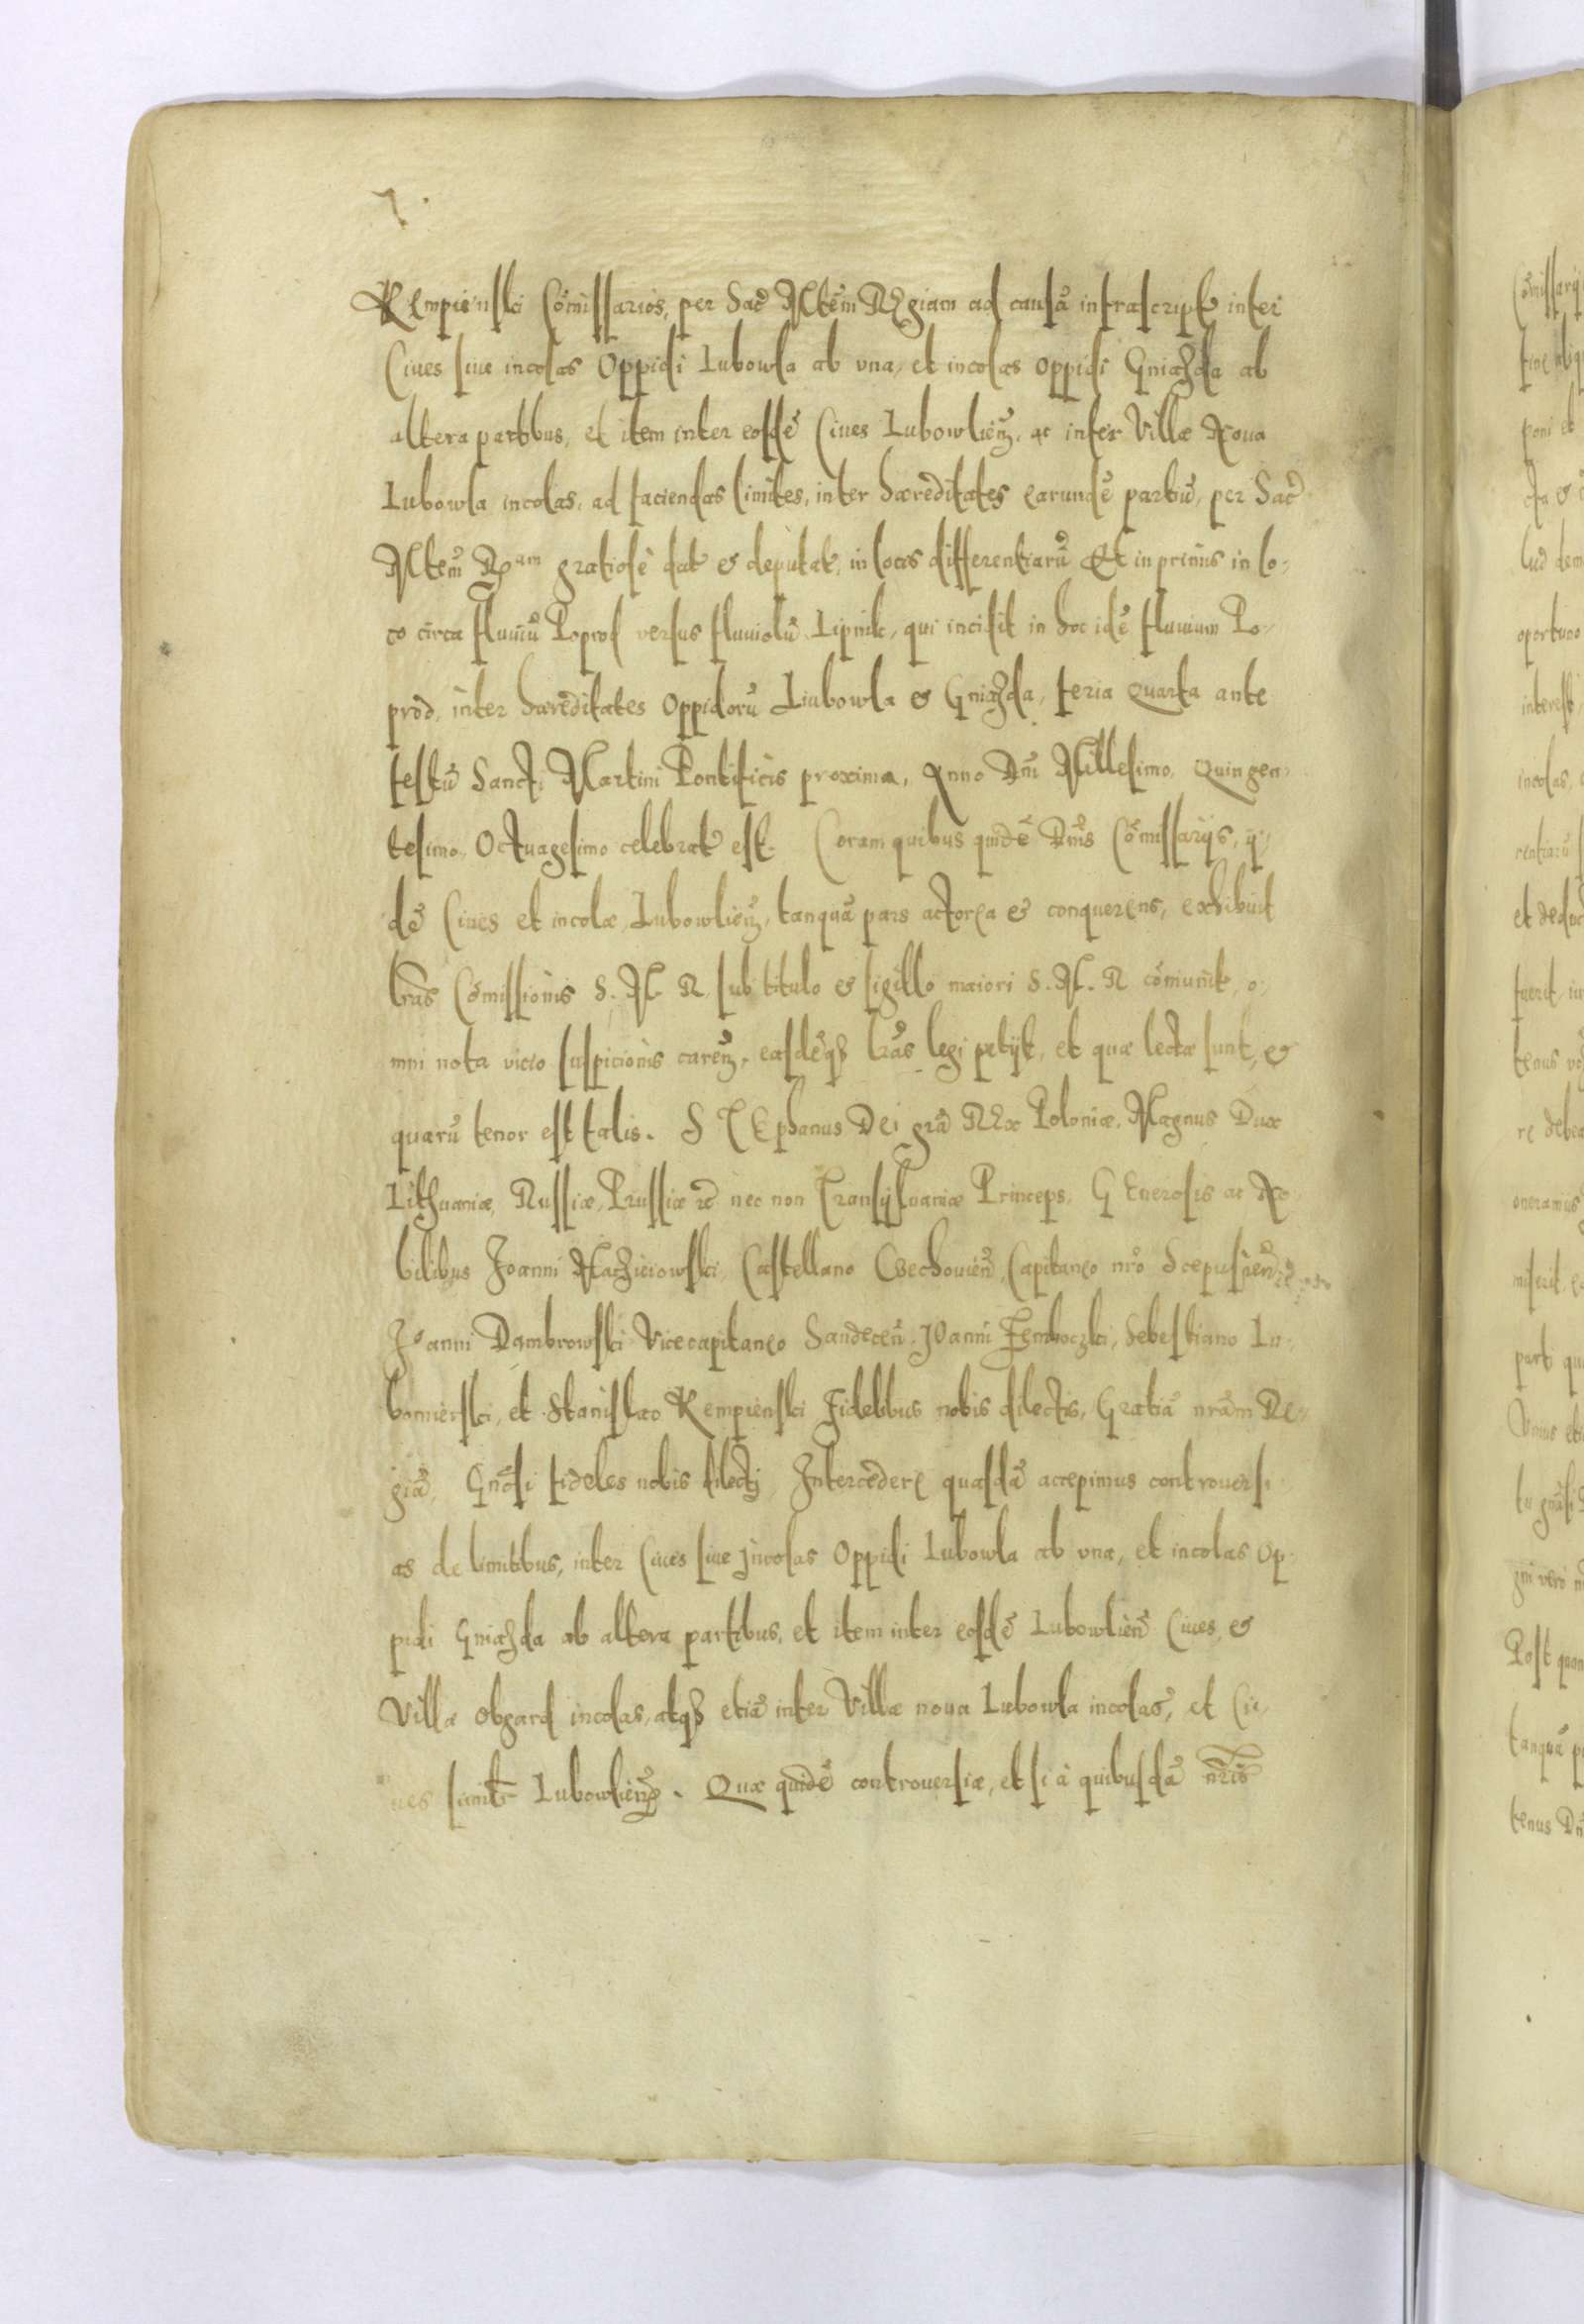 7.
Kempienski Cõmissarios, per Sac̃ Mtẽm REgiam ad causã infrascript inter
Ciues siue incolas Oppidi Lubowla ab vna, et incolas oppidi Gniazda ab
altera partibus, et item inter eosdẽ Ciues Lubowlieñ, ac inter Villæ Noua
Lubowla incolas, ad faciendas limites, inter hæreditates earundẽ partiũ, per Sac̃
Mtem̃ Rᵃᵐ gratiosè dat & deputat, in locis differentiarũ Et in primis in lo-
co circa fluuiũ Poprod versus fluuiolũ Lipnik, qui incisit in hoc idẽ fluuium Po-
prod, inter hæreditates Oppidorũ Liubowla & Gniazda, feria Quarta ante
festũ Sancti Martini Pontificis proxima, Anno Dñi Millesimo, Quingen-
tesimo, Octuagesimo celebrat est. Coram quibus quidẽ Dñis Cõmissarijs, ij-
dẽ Ciues et incolæ Lubowlieñ, tanquã pars actorea & conquerens, exhibuit
lr̃as Cõmissionis S. M. R. sub titulo & sigillo maiori S. M. R cõmunit, o-
mni nota vicio suspicionis careñ, easdẽqȝ lr̃as legi petijt, et quæ lectæ sunt, &
quarũ tenor est talis. STEphanus DEi gr̃a REx Poloniæ, Magnus Dux
Lithuaniæ, Russiæ, Prussiæ &c̃ nec non Transsyluaniæ Princeps, GEnerosis ac No
bilibus Joanni Maczieiowski, Castellano Czechouieñ, Capitaneo nr̃o Scepusieñ
Joanni Dambrowski Vicecapitaneo Sandeceñ, JOanni Sebestiano Lu-
bomierski, et Stanislao Kempienski Fidelibus nobis dilectis, Gratiã nr̃am Re-
giã, Gñosi fideles nobis dilecti, Intercedere quasdã accepimus controuersi
as de limitibus, inter Ciues siue jncolas Oppidi Lubowla ab vna, et incolas Op-
pidi Gniazda ab altera partibus, et item inter eosdẽ Lubowlieñ Ciues, &
Villæ Obgard incolas, atqȝ etiã inter Villæ noua Lubowla incolas, et Ci-
ues simlr̃ Lubowlieñ. Quæ quidẽ controuersiæ, etsi à quibusdã nr̃is